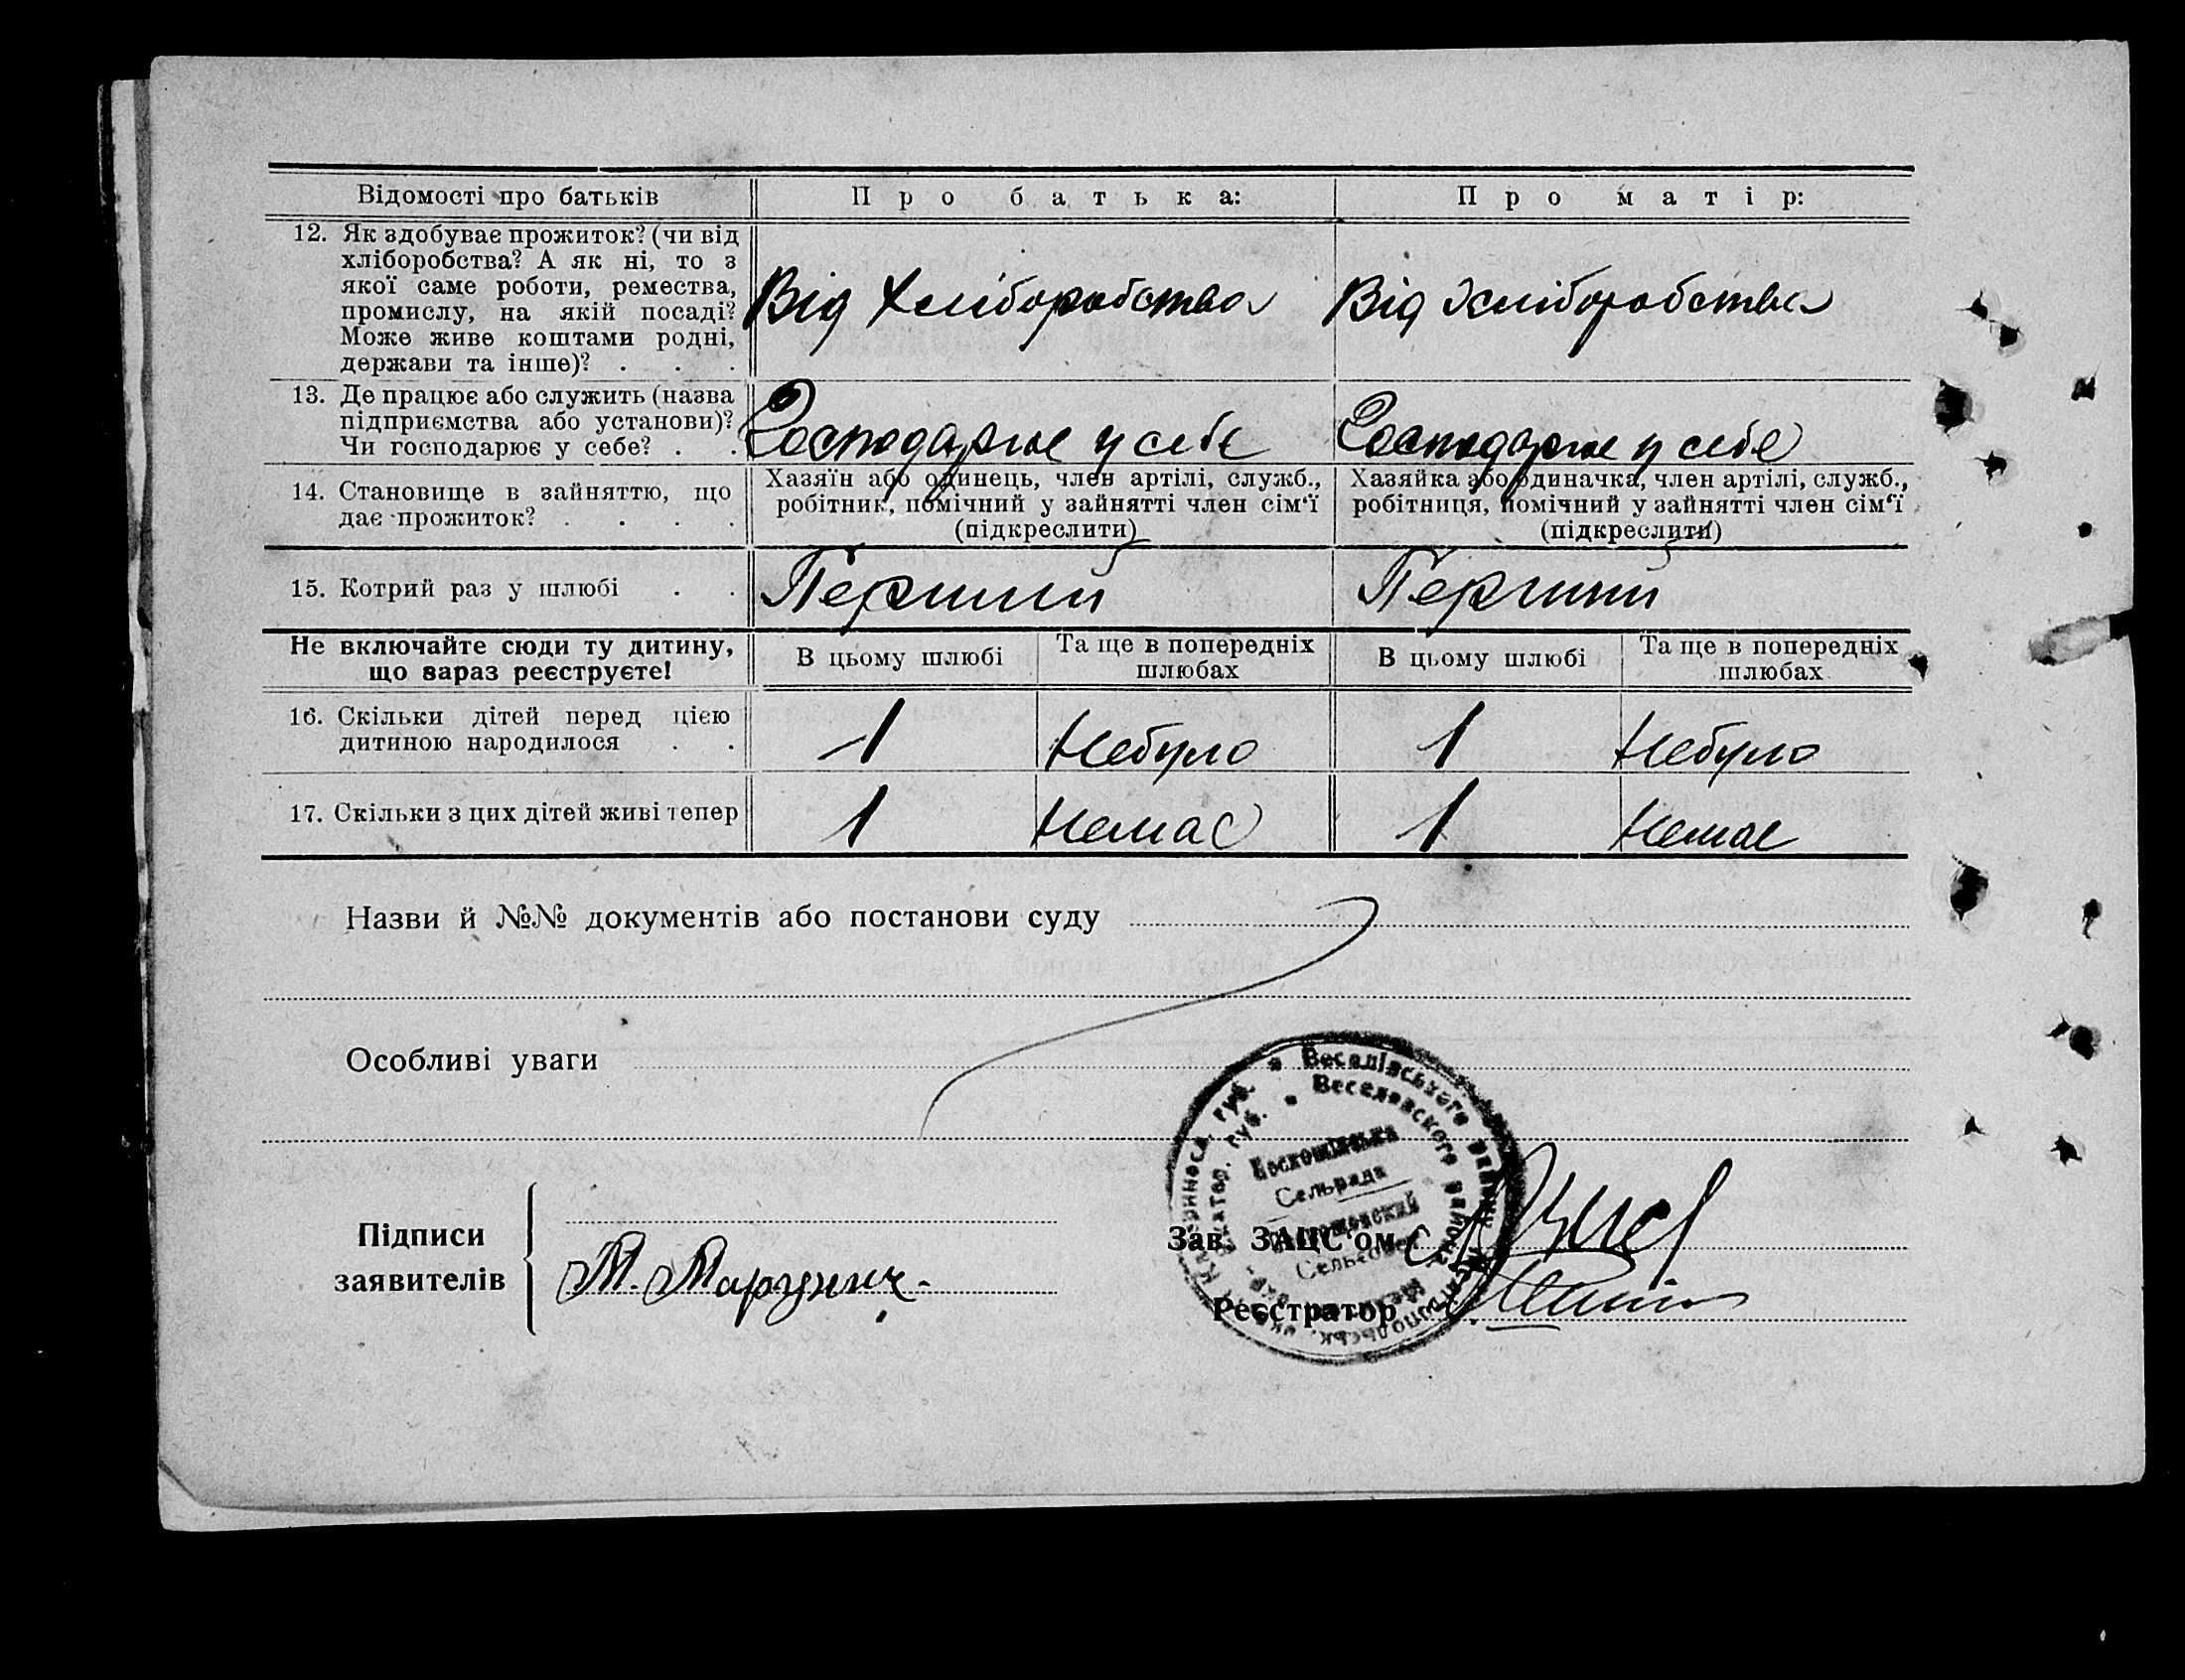 Відомості про батьків
Про батька:
Про матір:
12. Як здобуває прожиток? (чи від
хліборобства? А як ні, то з
якої саме роботи, ремества,
промислу, на якій посаді?
Може живе коштами родні,
держави та інше)? . . .
Від Хліборобства
Від Хліборобства
13. Де працює або служить (назва
підприємства або установи)?
Чи господарює у себе? . .
Господарює у себе
Господарює у себе
14. Становище в зайняттю, що
дає прожиток? . . . .
Хазяїн або одинець, член артілі, служб.,
робітник, помічний у зайнятті член сім'ї
(підкреслити)
Хазяйка або одиначка, член артілі, служб.,
робітниця, помічний у зайнятті член сім'ї
(підкреслити)
15. Котрий раз у шлюбі . .
Перший
Перший
Не включайте сюди ту дитину,
що зараз реєструєте!
В цьому шлюбі
Та ще в попередніх
шлюбах
В цьому шлюбі
Та ще в попередніх
шлюбах
16. Скільки дітей перед цією
дитиною народилося . .
1
Небуло
1
Небуло
17. Скільки з цих дітей живі тепер
1
Немає
1
Немає
Назви й №№ документів або постанови суду
Особливі уваги
Веселівського району
Веселовского района
губ.
губ.
Сельрада
Підписи
заявителів
М. Марунич.
Зав. ЗАЦС'ом
Реєстратор